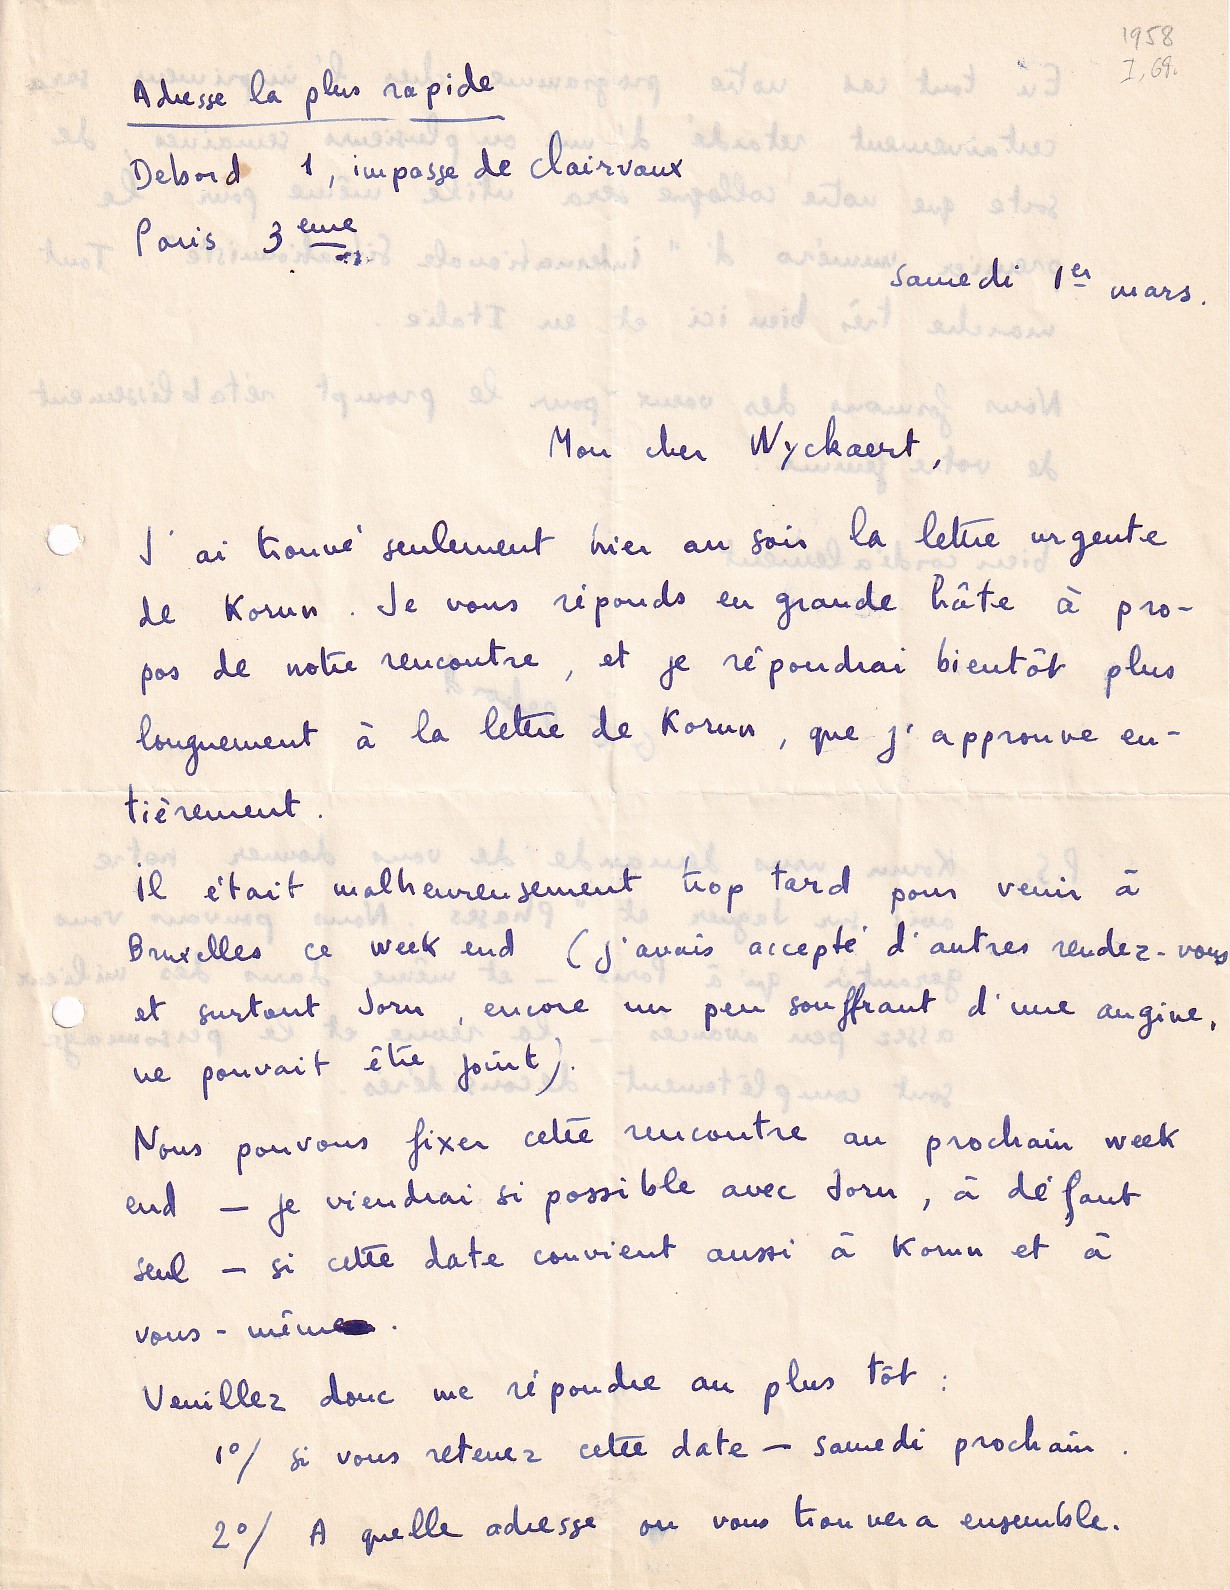 1958
I, 69.
Adresse la plus rapide
Debord 1, impasse de Clairvaux
Paris 3 eme
Samedi 1er mars.
Mon cher Wyckaert,
J'ai trouvé seulement hier au soir la lettre urgente
de Korun. Je vous réponds en grande hâte à pro-
pos de notre rencontre, et je répondrai bientôt plus
longuement à la lettre de Korun, que j'approuve en-
tièrement.
Il était malheureusement trop tard pour venir à
Bruxelles ce week end (j'avais accepté d'autres rendez-vous
et surtout Jorn, encore un peu souffrant d'une angine,
ne pouvait être joint).
Nous pouvons fixer cette rencontre au prochain week
end — je viendrai si possible avec Jorn, à défaut
seul — si cette date convient aussi à Korun et à
vous-même.
Veuillez donc me répondre au plus tôt :
1°/ si vous retenez cette date — samedi prochain.
2°/ A quelle adresse on vous trouvera ensemble.